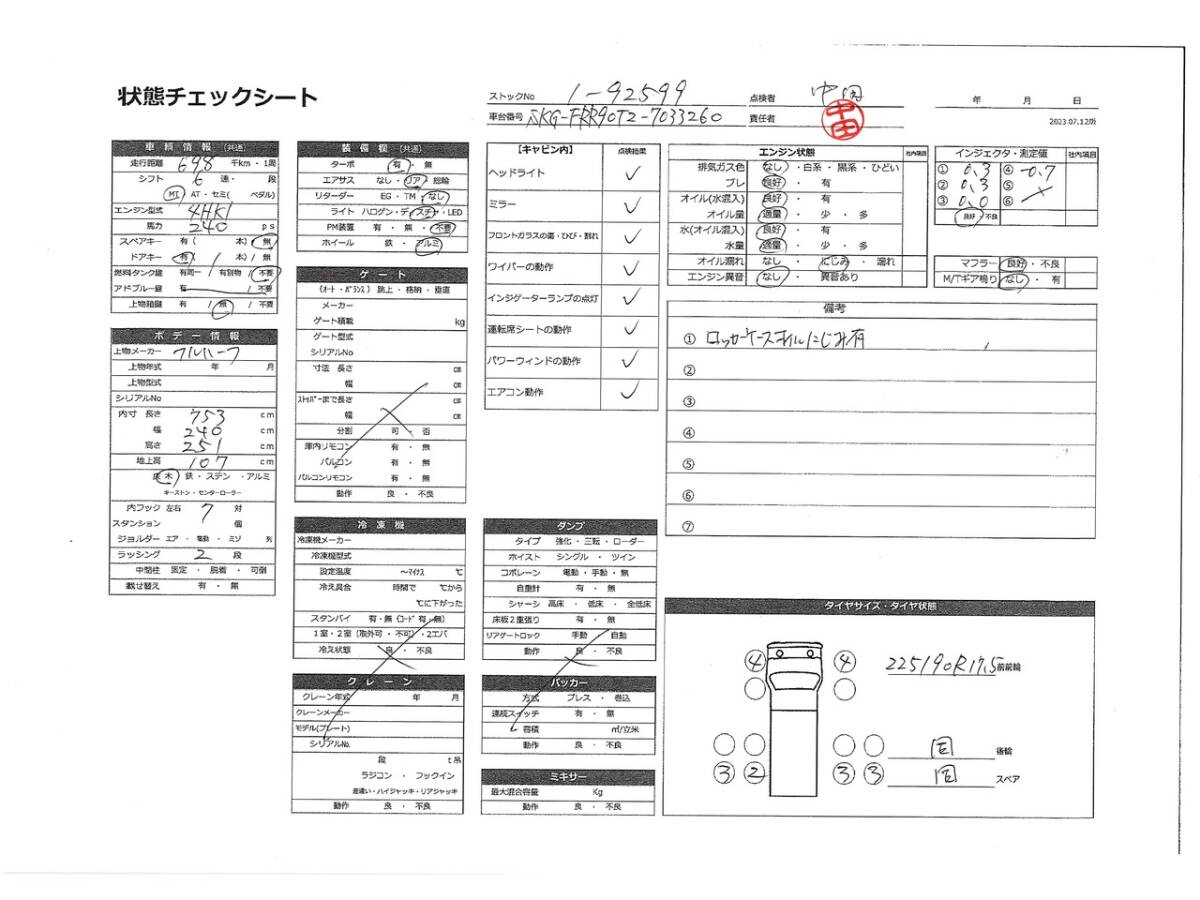 状態チェックシート
ストックNo 1-92599 点検者 中田
車台番号 SKG-FRR90T2-7033260 責任者 中田
年 月 日
2023.07.12版
車輌情報 (共通)
走行距離 698 千km・1周
シフト 6 速・ 段
MT・AT・セミ( ペダル)
エンジン型式 4HK1
馬力 240 ps
スペアキー 有 ( 本)/ 無
ドアキー 有 ( 本)/ 無
燃料タンク鍵 有同一 / 有別物 / 不要
アドブルー鍵 有 / 不要
上物箱鍵 有 / 無 / 不要
ボデー情報
上物メーカー フルハーフ
上物年式 年 月
上物型式
シリアルNo
内寸 長さ 753 cm
幅 240 cm
高さ 251 cm
地上高 107 cm
床 木・鉄・ステン・アルミ
キーストン・センターローラー
内フック 左右 7 対
スタンション 個
ジョルダー エア ・ 電動 ・ ミゾ 列
ラッシング 2 段
中間柱 固定 ・ 脱着 ・ 可倒
載せ替え 有 ・ 無
装備欄 (共通)
ターボ 有 ・ 無
エアサス なし・リア・総輪
リターダー EG・TM・なし
ライト ハロゲン・ディスチャ・LED
PM装置 有 ・ 無 ・ 不要
ホイール 鉄 ・ アルミ
ゲート
(オート・バランス) 跳上・格納・垂直
メーカー
ゲート積載 kg
ゲート型式
シリアルNo
寸法 長さ ㎝
幅 ㎝
ストッパーまで長さ ㎝
幅 ㎝
分割 可 ・ 否
庫内リモコン 有 ・ 無
バルコン 有 ・ 無
バルコンリモコン 有 ・ 無
動作 良 ・ 不良
冷凍機
冷凍機メーカー
冷凍機型式
設定温度 ～マイナス ℃
冷え具合 時間で ℃から
℃に下がった
スタンバイ 有・無 (コード 有・無)
1室・2室 (取外可・不可)・2エバ
冷え状態 良 ・ 不良
クレーン
クレーン年式 年 月
クレーンメーカー
モデル(プレート)
シリアルNo.
段 t吊
ラジコン ・ フックイン
差違い・ハイジャッキ・リアジャッキ
動作 良 ・ 不良
【キャビン内】 点検結果
ヘッドライト ✓
ミラー ✓
フロントガラスの傷・ひび・割れ ✓
ワイパーの動作 ✓
インジゲーターランプの点灯 ✓
運転席シートの動作 ✓
パワーウィンドの動作 ✓
エアコン動作 ✓
ダンプ
タイプ 強化・三転・ローダー
ホイスト シングル ・ ツイン
コボレーン 電動・手動・無
自重計 有 ・ 無
シャーシ 高床 ・ 低床 ・ 全低床
床板2重張り 有 ・ 無
リアゲートロック 手動 ・ 自動
動作 良 ・ 不良
パッカー
方式 プレス ・ 巻込
連続スイッチ 有 ・ 無
容積 ㎥/立米
動作 良 ・ 不良
ミキサー
最大混合容量 Kg
動作 良 ・ 不良
エンジン状態 社内項目
排気ガス色 なし・白系・黒系・ひどい
ブレ 良好 ・ 有
オイル(水混入) 良好 ・ 有
オイル量 適量 ・ 少 ・ 多
水(オイル混入) 良好 ・ 有
水量 適量 ・ 少 ・ 多
オイル漏れ なし ・ にじみ ・ 漏れ
エンジン異音 なし ・ 異音あり
インジェクタ・測定値 社内項目
① 0.3 ④ -0.7
② 0.3 ⑤
③ 0.0 ⑥
良好・不良
マフラー 良好・不良
M/Tギア鳴り なし ・ 有
備考
① ロッカーケースオイルにじみ有
②
③
④
⑤
⑥
⑦
タイヤサイズ・タイヤ状態
④ ④ 225/90R17.5 前前輪
同 後輪
③ ② ③ ③ 同 スペア